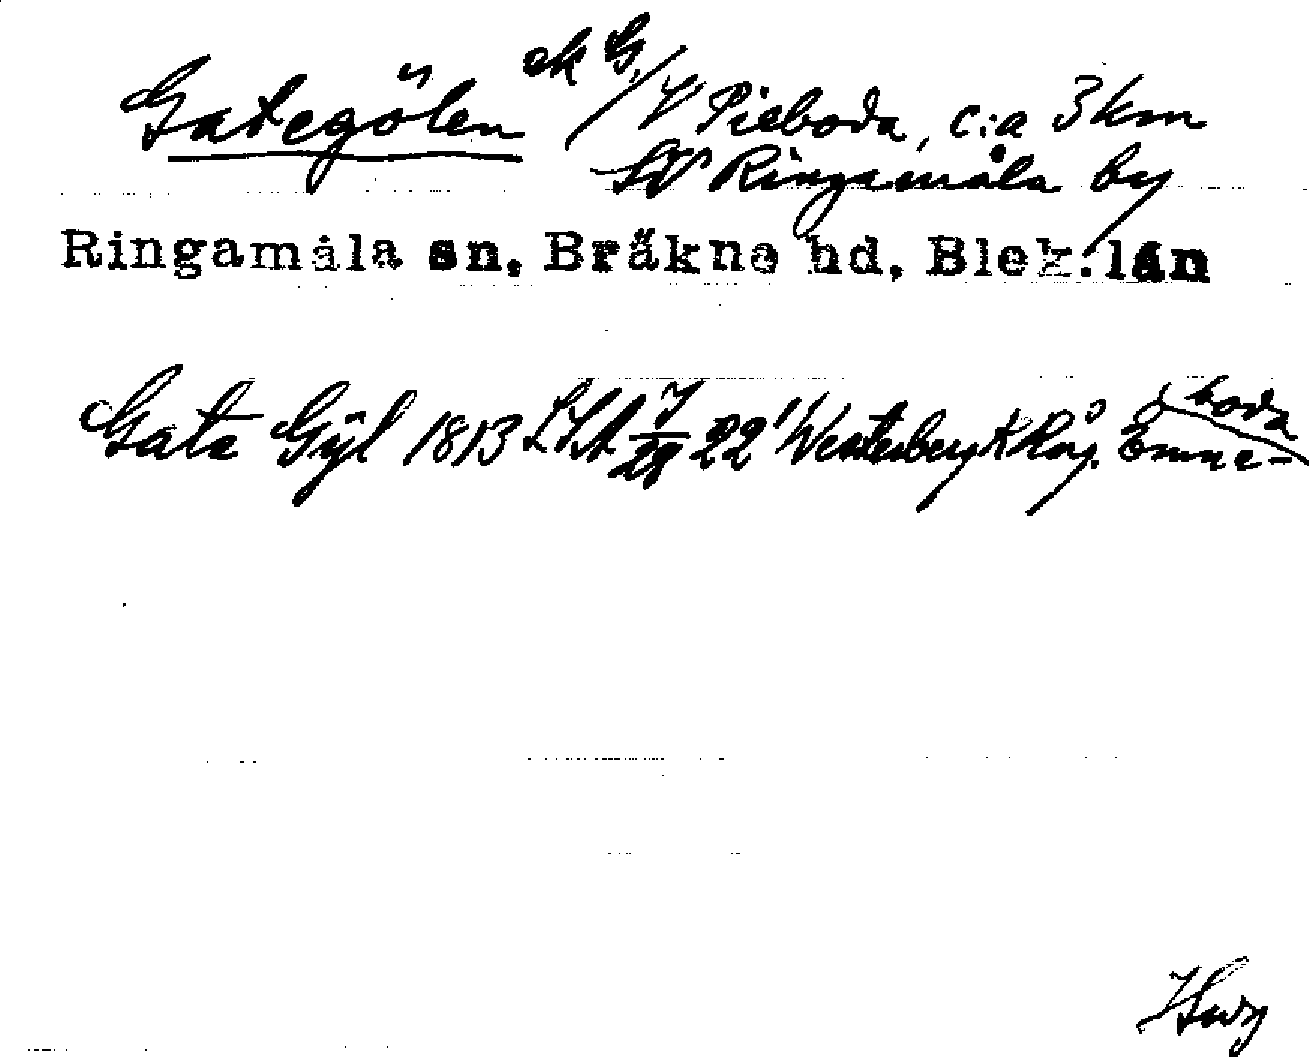 Gategölen ek G./V Pieboda, c:a 3 km
SV Ringamåla by
Ringamåla sn, Bräkne hd, Blek. län
Gata Gÿl 1813 LSA 22 Westerberg K Råg. Emme-
boda